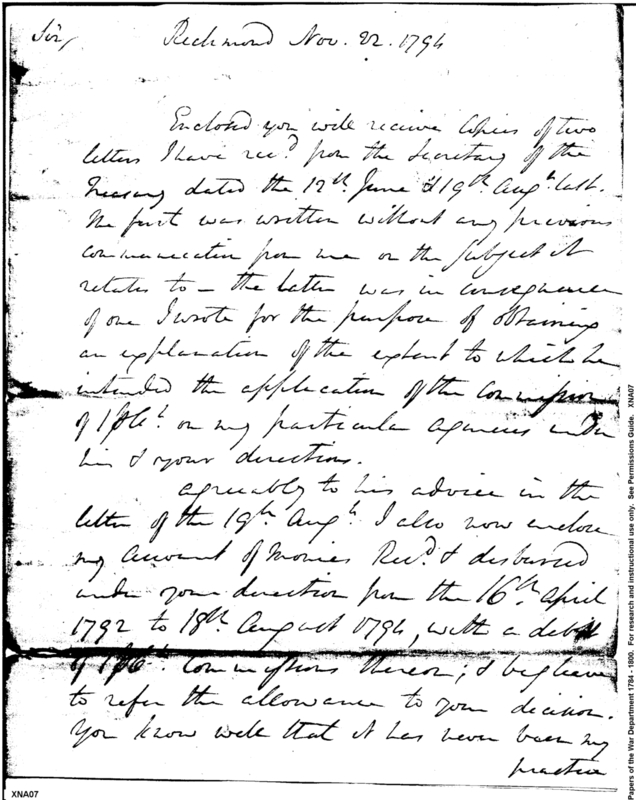 Sir, Richmond Nov. 22. 1794
Enclosed you will receive Copies of two
letters I have rec.d from the Secretary of the
Treasury dated the 12th June & 19th Augt last.
The first was written without any previous
communication from me on the subject it
relates to – the latter was in consequence
of one I wrote for the purpose of obtaining
an explanation of the extent to which he
intended the application of the Commission
of 1 on my particular agencies under
him & your directions.
agreeably to his advice in the
letter of the 19th Augt I also now enclose
my account of Monies Rec.d & disbursed
under your direction from the 16th April
1792 to 18th August 1794, with a debit
of 1 Commissions thereon; & beg leave
to refer the allowance to your decision.
You know well that it has never been my
practice
XNA07
Papers of the War Department 1784 - 1800. For research and instructional use only. See Permissions Guide. XNA07